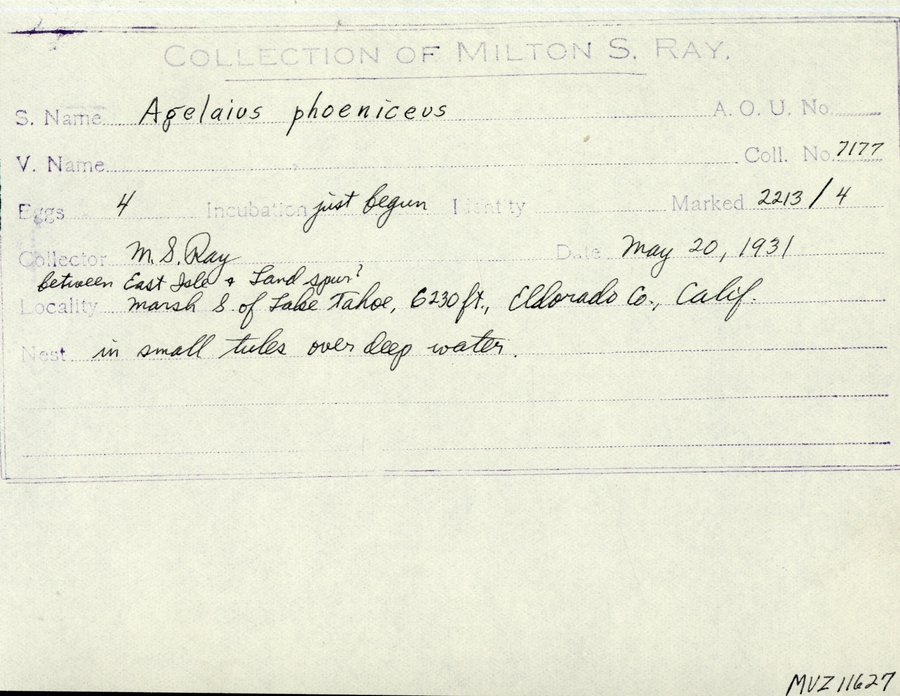 COLLECTION OF MILTON S. RAY.
S. Name Agelaius phoeniceus A. O. U. No.
V. Name Coll. No. 7177
Eggs 4 Incubation just begun Identity Marked 2213/4
Collector M.S. Ray Date May 20, 1931
between East Isle & Sand spur?
Locality marsh S. of Lake Tahoe, 6230 ft., Eldorado Co., Calif.
Nest in small tules over deep water.
MVZ 11627